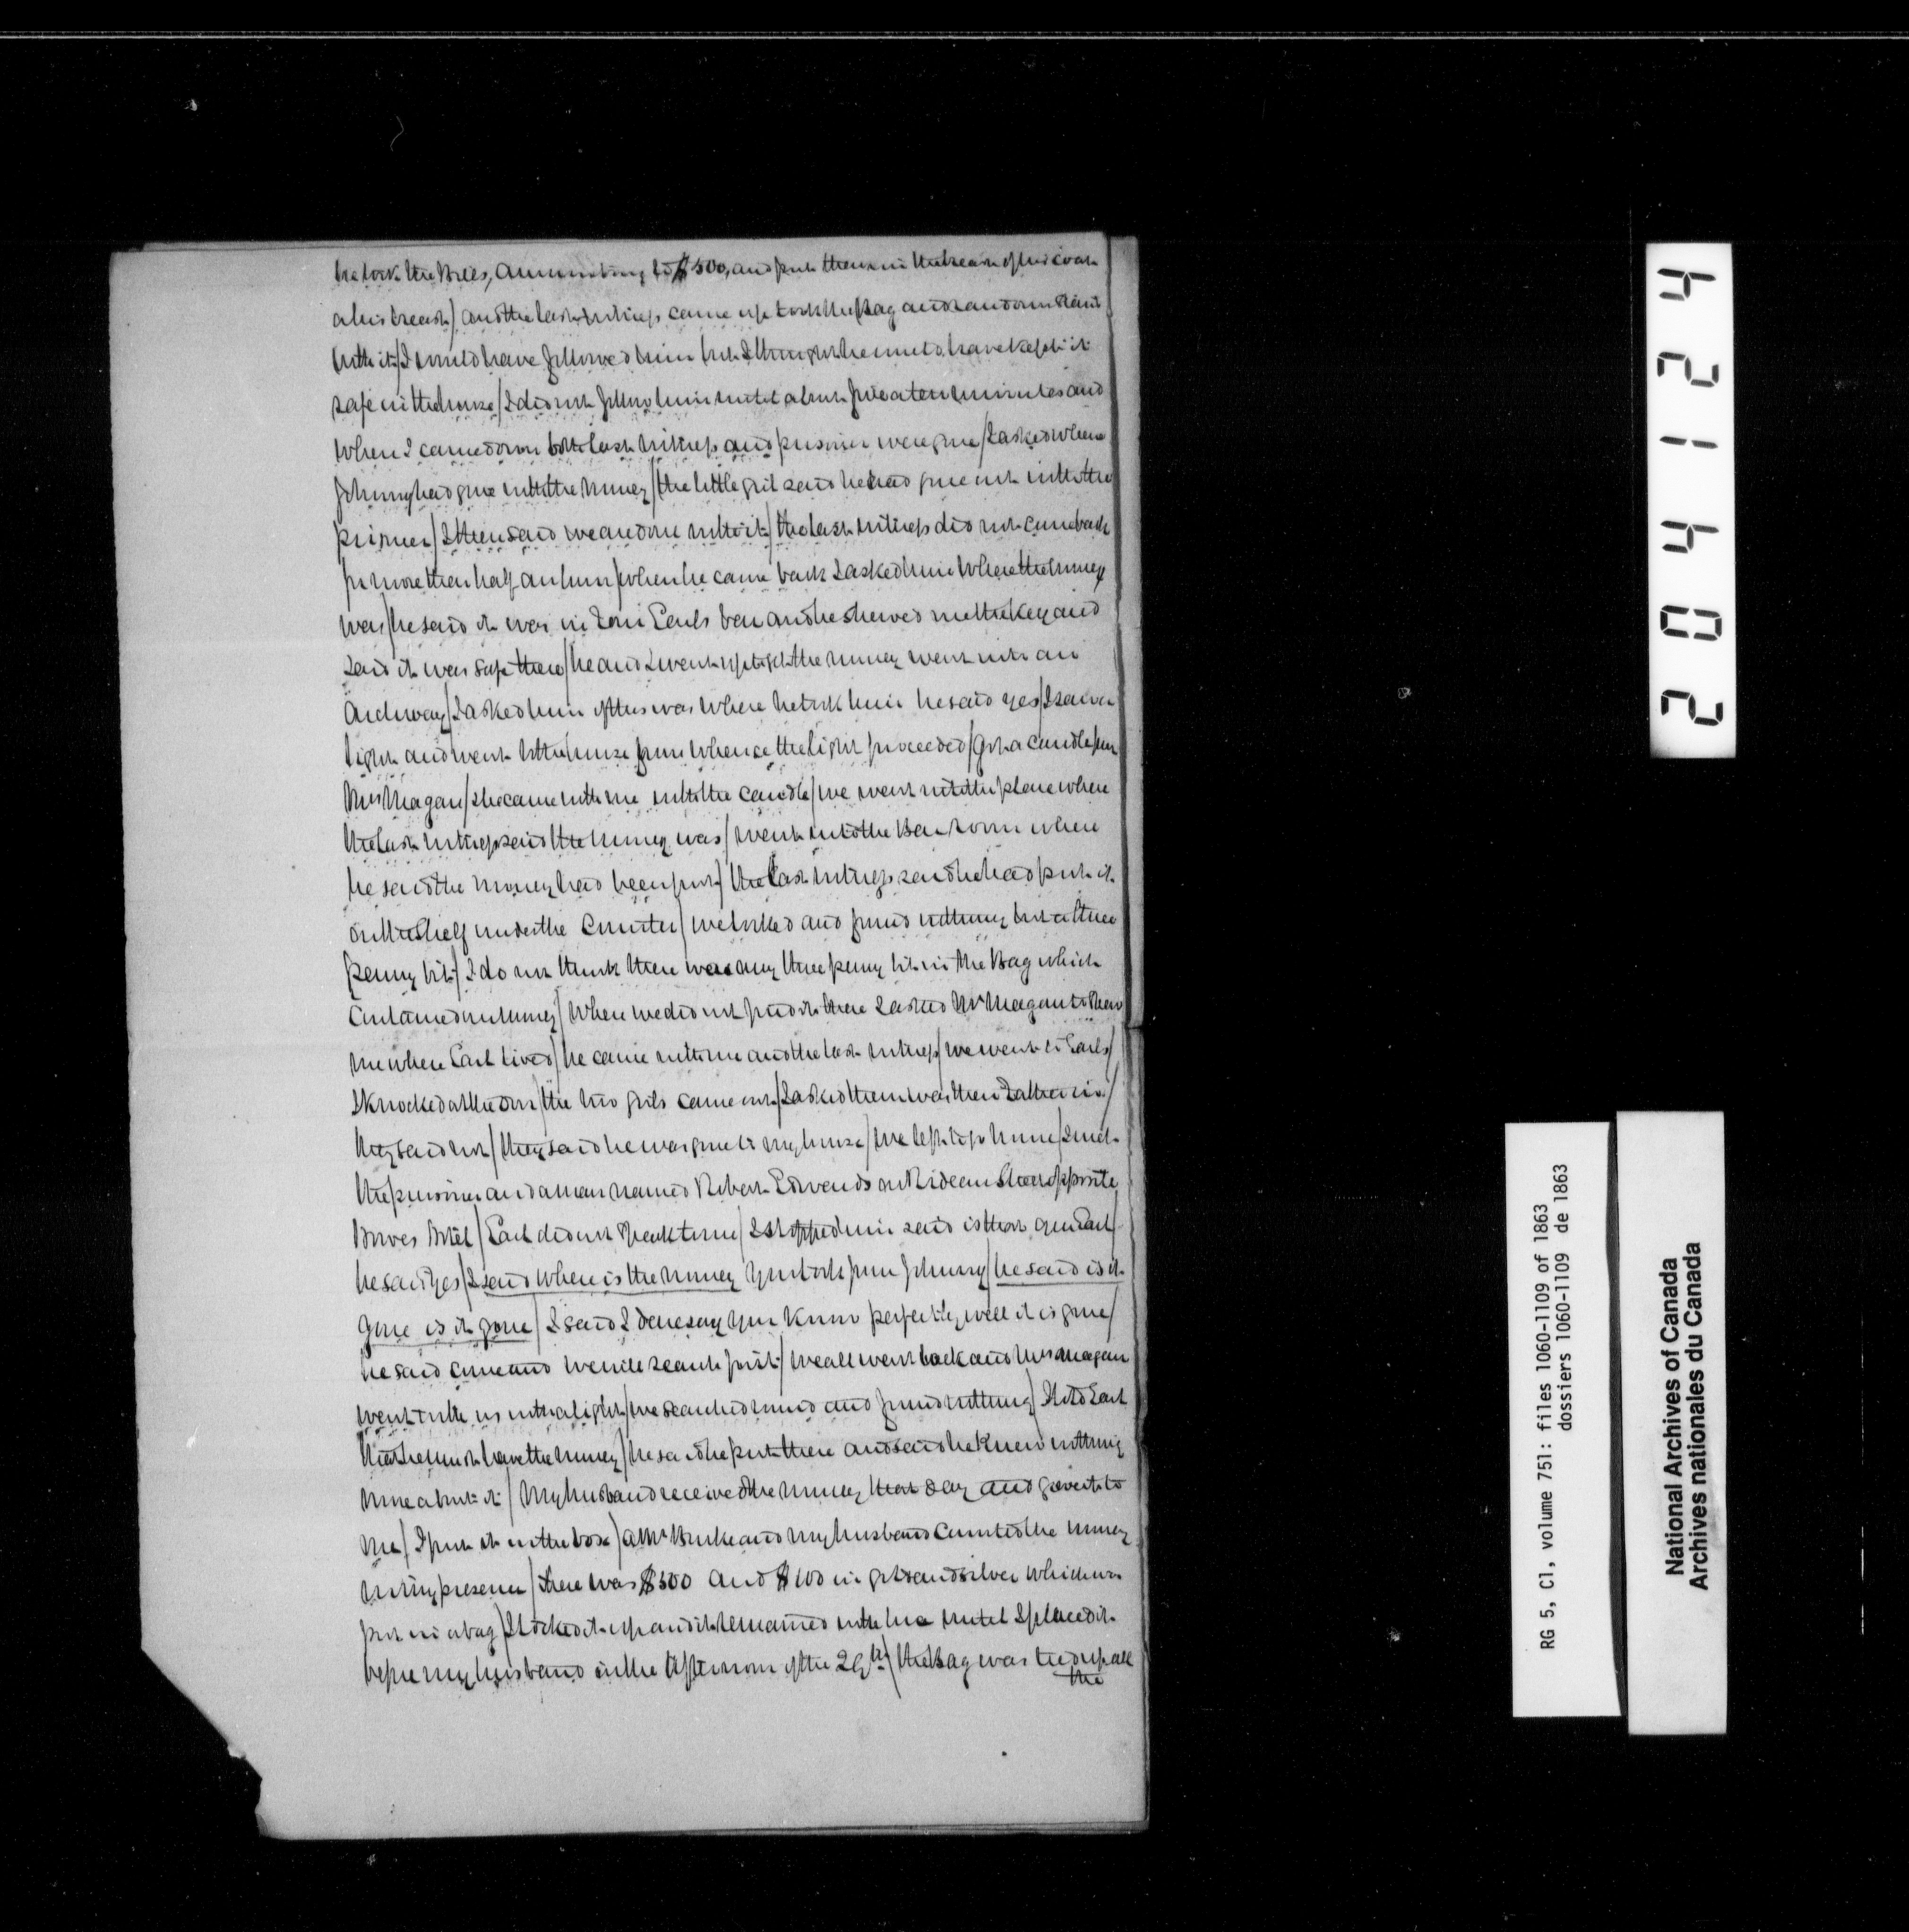 he took the Bills, amounting to $500, and put them in the breast of his coat
a his breast/ and the last witness came up took the Bag and ran down stairs
with it/ I would have followed him but I thought he would have kept it
safe in the house/ I did not follow him until about five a ten minutes and
when I came down both last witness and prisoner were gone/ I asked where
Johnny had gone with the money/ the little girl said he had gone out with the
prisoner/ I then said we are done with it/ the last witness did not come back
for more than half an hour/ when he came back I asked him where the money
was/ he said it was in Tom Earls bar and he shewed me the key and
said it was safe there/ he and I went up to get the money went into an
Archway/ I asked him if this was where he took him he said yes/ I saw a
light and went to the house from whence the light proceeded/ Got a candle from
Mrs Meagan/ she came with me with the candle/ we went into the place where
the last witness said the money was/ went into the Bar room where
he said the money had been put/ the last witness said he had put it
on the shelf under the Counter/ we looked and found nothing but a three
penny bit/ I do not think there was any three penny bit in the Bag which
contained my money/ When we did not find it there I asked Mr Meagan to shew
me where Earl lived/ he came with me and the last witness/ we went to Earls/
I knocked at the door/ the two girls came out/ I asked them was their Father in/
they said not/ they said he was gone to my house/ we left to go home/ I met
the prisoner and a man named Robert Edwards on Rideau Street opposite
Hotel/ Earl did not speak to me/ I stopped him said is that you Earl/
he said yes/ I said where is the money you took from Johnny/ he said is it
gone is it gone/ I said I dare say you know perfectly well it is gone/
he said come and we will search for it/ we all went back and Mrs Meagan
went with us with a light/ we searched round and found nothing/ I told Earl
that he must have the money/ he said he put it there and said he knew nothing
more about it/ My husband received the money that day and gave it to
me/ I put it in the box/ a Mr Burke and my husband counted the money
in my presence/ there was $500 and $100 in gold and silver which was
put in a bag/ I locked it up and it remained in the box until I placed it
before my husband on the afternoon of the 29th/ the Bag was tied up all
the
204124
RG 5, C1, volume 751: files 1060-1109 of 1863
dossiers 1060-1109 de 1863
National Archives of Canada
Archives nationales du Canada